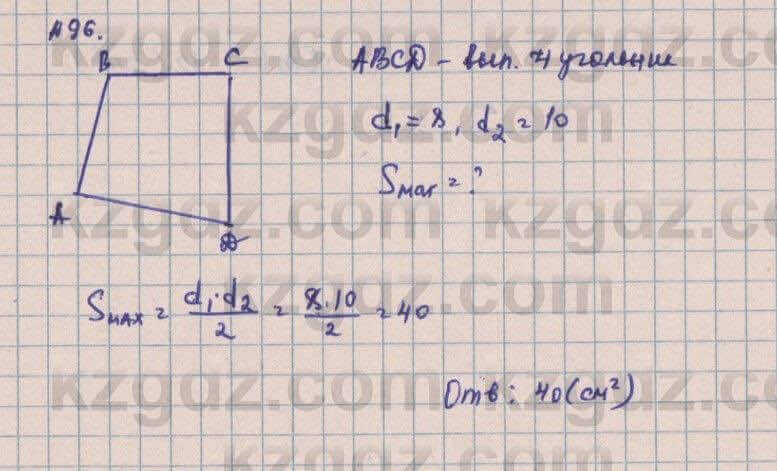 №96.
B C
ABCD - вып. 4угольник
d₁ = 8, d₂ = 10
Sмах = ?
A D
Sмах = d₁·d₂/2 = 8·10/2 = 40
Отв: 40(см²)
kzgdz.com kzgdz.com
kzgdz.com
kzgdz.com kzgdz.com
kzgdz.com
kzgdz.com kzgdz.com
kzgdz.com